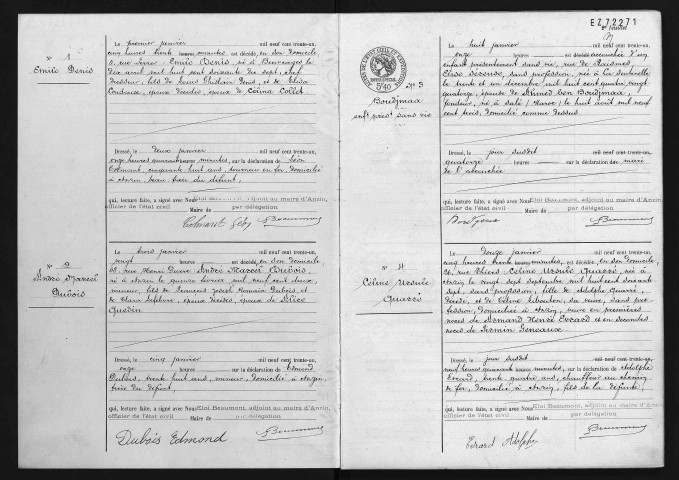 N° 1
Emile Denis
Le premier janvier mil neuf cent trente-un,
cinq heures trente heures minutes, est décédé, en son domicile
Emile Denis, né à
dix août mil huit cent soixante dix sept, chef
fils de Denis et de Elisa
décédés, époux de Célina Collet
Dressé, le deux janvier mil neuf cent trente-un,
onze heures quarante heures minutes, sur la déclaration de Léon
Colmant, cinquante huit ans, tourneur en fer, domicilié
à Anzin, beau frère du défunt,
qui, lecture faite, a signé avec Nous Eloi Beaumont, adjoint au maire d'Anzin,
officier de l'état civil Maire de par délégation
Colmant Léon Beaumont
N° 2
André Marcel
Dubois
Le trois janvier mil neuf cent trente-un,
vingt heures minutes, est décédé, en son domicile
rue Henri Durre André Marcel Dubois,
né à Anzin le quinze février mil neuf cent deux,
mineur, fils de François Joseph Romain Dubois et
de Lefebvre, époux décédés, époux de
Dressé, le cinq janvier mil neuf cent trente-un,
onze heures minutes, sur la déclaration de Edmond
Dubois, trente huit ans, mineur, domicilié à Anzin,
frère du défunt,
qui, lecture faite, a signé avec Nous Eloi Beaumont, adjoint au maire d'Anzin,
officier de l'état civil Maire de par délégation
Dubois Edmond Beaumont
EZ72271
2e feuillet
5f40
N° 3
Boudjmaa
enft présté sans vie
Le huit janvier mil neuf cent trente-un,
onze heures est accouchée d'un
enfant présentement sans vie, rue de Raismes,
Elise sans profession, née à La Sentinelle
le trente et un décembre mil huit cent quatre vingt
quatorze, épouse de Ahmed ben Boudjmaa,
fondeur, né à Salé (Maroc) le huit août mil neuf
cent trois, domicilié comme dessus
Dressé, le jour susdit mil neuf cent trente-un,
quatorze heures minutes, sur la déclaration du mari
de l'accouchée
qui, lecture faite, a signé avec Nous Eloi Beaumont, adjoint au maire d'Anzin,
officier de l'état civil Maire de par délégation
Beaumont
N° 4
Céline Ursule
Quarré
Le douze janvier mil neuf cent trente-un,
cinq heures trente heures minutes, est décédée, en son domicile,
rue Thiers Céline Ursule Quarré, née à
Anzin le vingt sept septembre mil huit cent soixante
sept, sans profession, fille de Adolphe Quarré,
décédé, et de Céline sa veuve, sans pro
fession, domiciliée à Anzin, veuve en premières
noces de Armand Henri Evrard et en secondes
noces de Firmin Geneaux
Dressé, le jour susdit mil neuf cent trente-un,
neuf heures quarante heures minutes, sur la déclaration de Adolphe
Evrard, trente quatre ans, chauffeur au chemin
de fer, domicilié à Anzin, fils de la défunte,
qui, lecture faite, a signé avec Nous Eloi Beaumont, adjoint au maire d'Anzin,
officier de l'état civil Maire de par délégation
Evrard Adolphe Beaumont